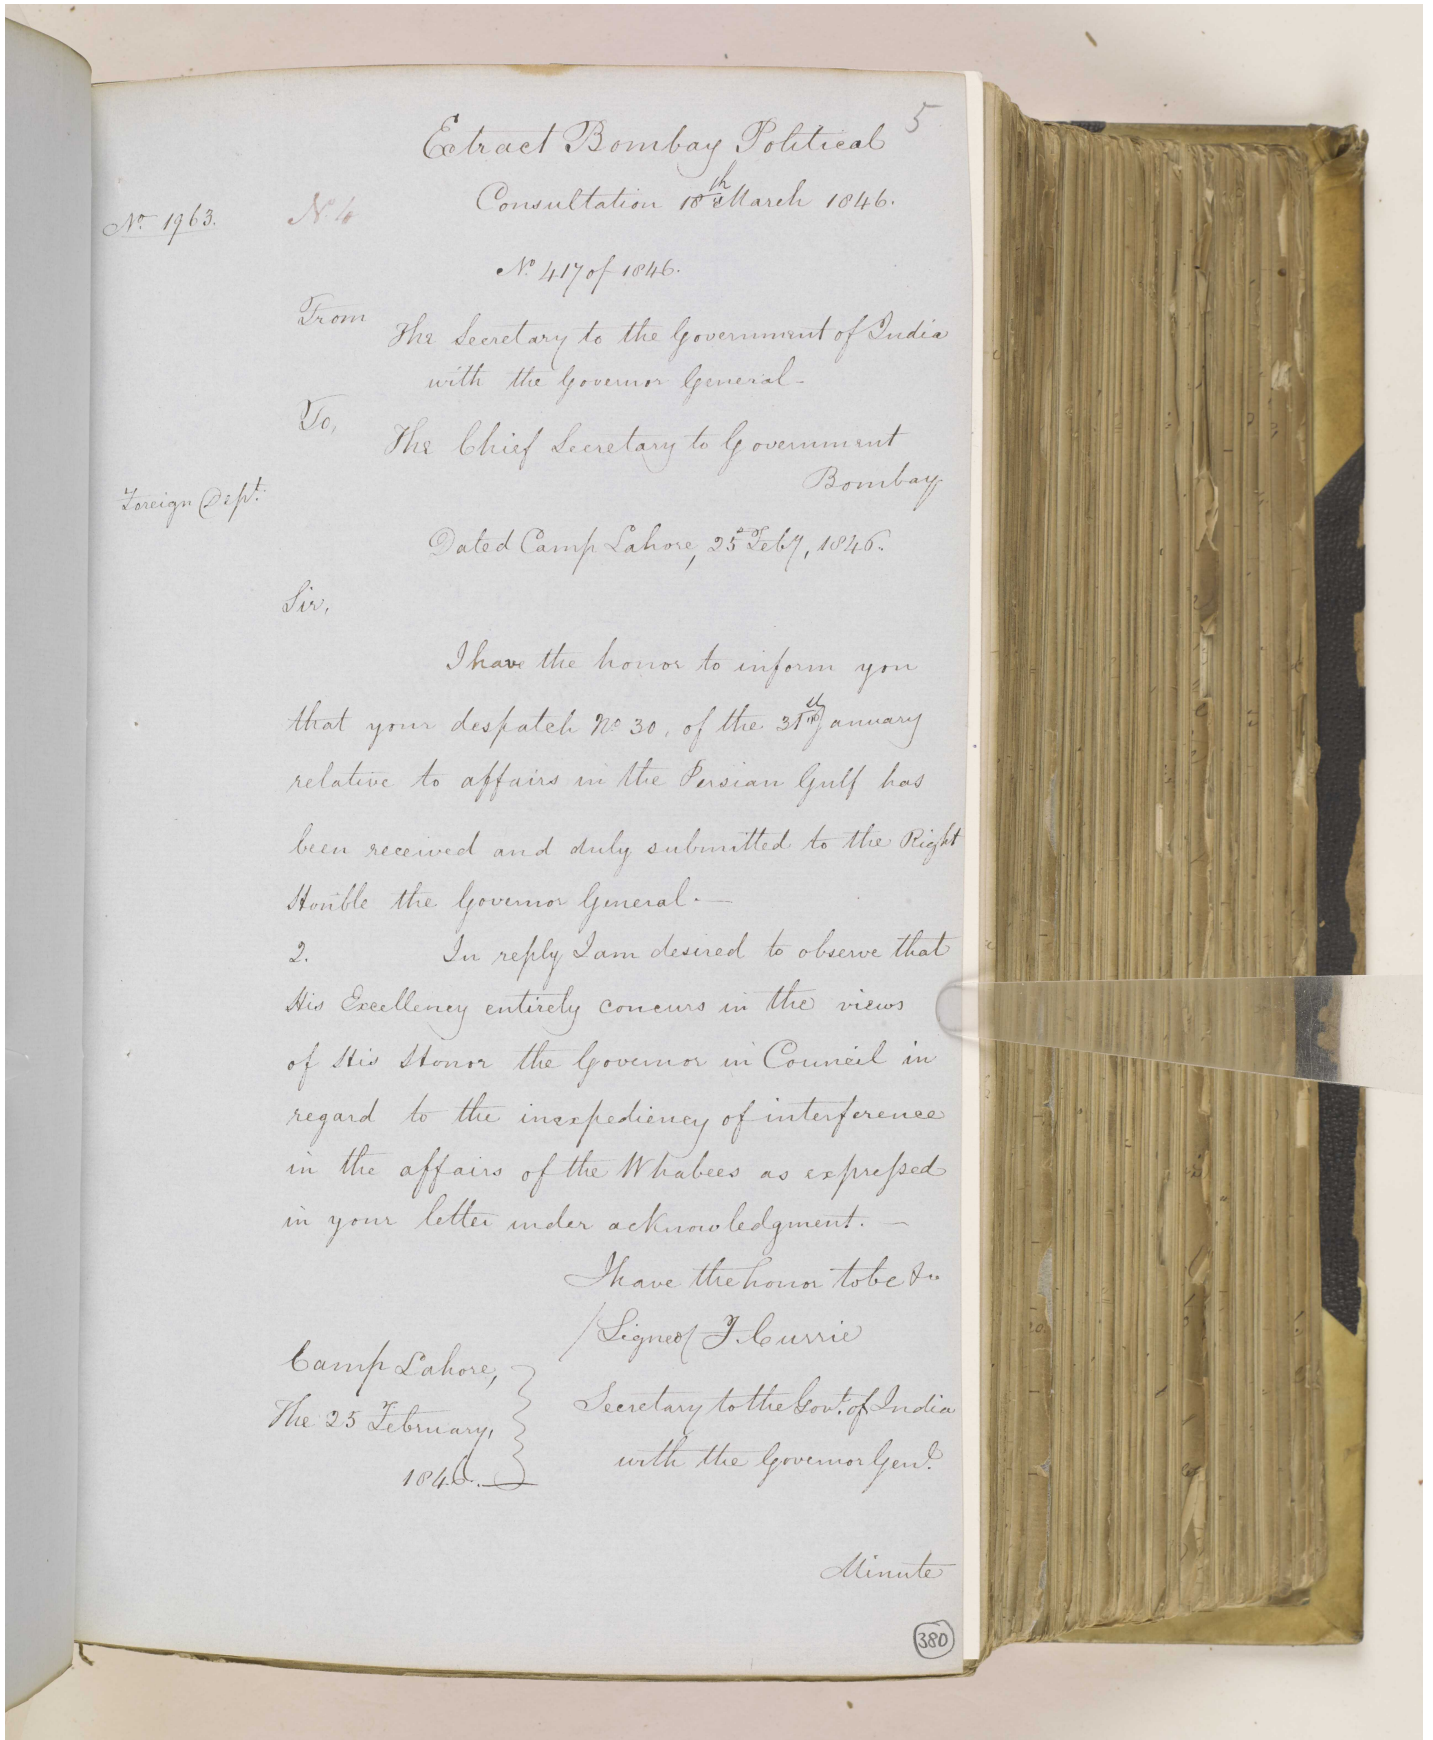 5
Extract Bombay Political
Consultation 18th March 1846.
No. 1963.
N. 4
No. 417 of 1846.
From
The Secretary to the Government of India
with the Governor General -
To,
The Chief Secretary to Government
Bombay.
Foreign Dept.
Dated Camp Lahore, 25 Feby, 1846.
Sir,
I have the honor to inform you
that your despatch No 30, of the 31st January
relative to affairs in the Persian Gulf has
been received and duly submitted to the Right
Honible the Governor General. —
2. In reply I am desired to observe that
His Excellency entirely concurs in the views
of His Honor the Governor in Council in
regard to the inexpediency of interference
in the affairs of the Whabees as expressed
in your letter under acknowledgment. —
I have the honor to be &c
/Signed/ F. Currie
Camp Lahore,
The 25 February,
1846. —
Secretary to the Govt. of India
with the Governor Genl.
Minute
380